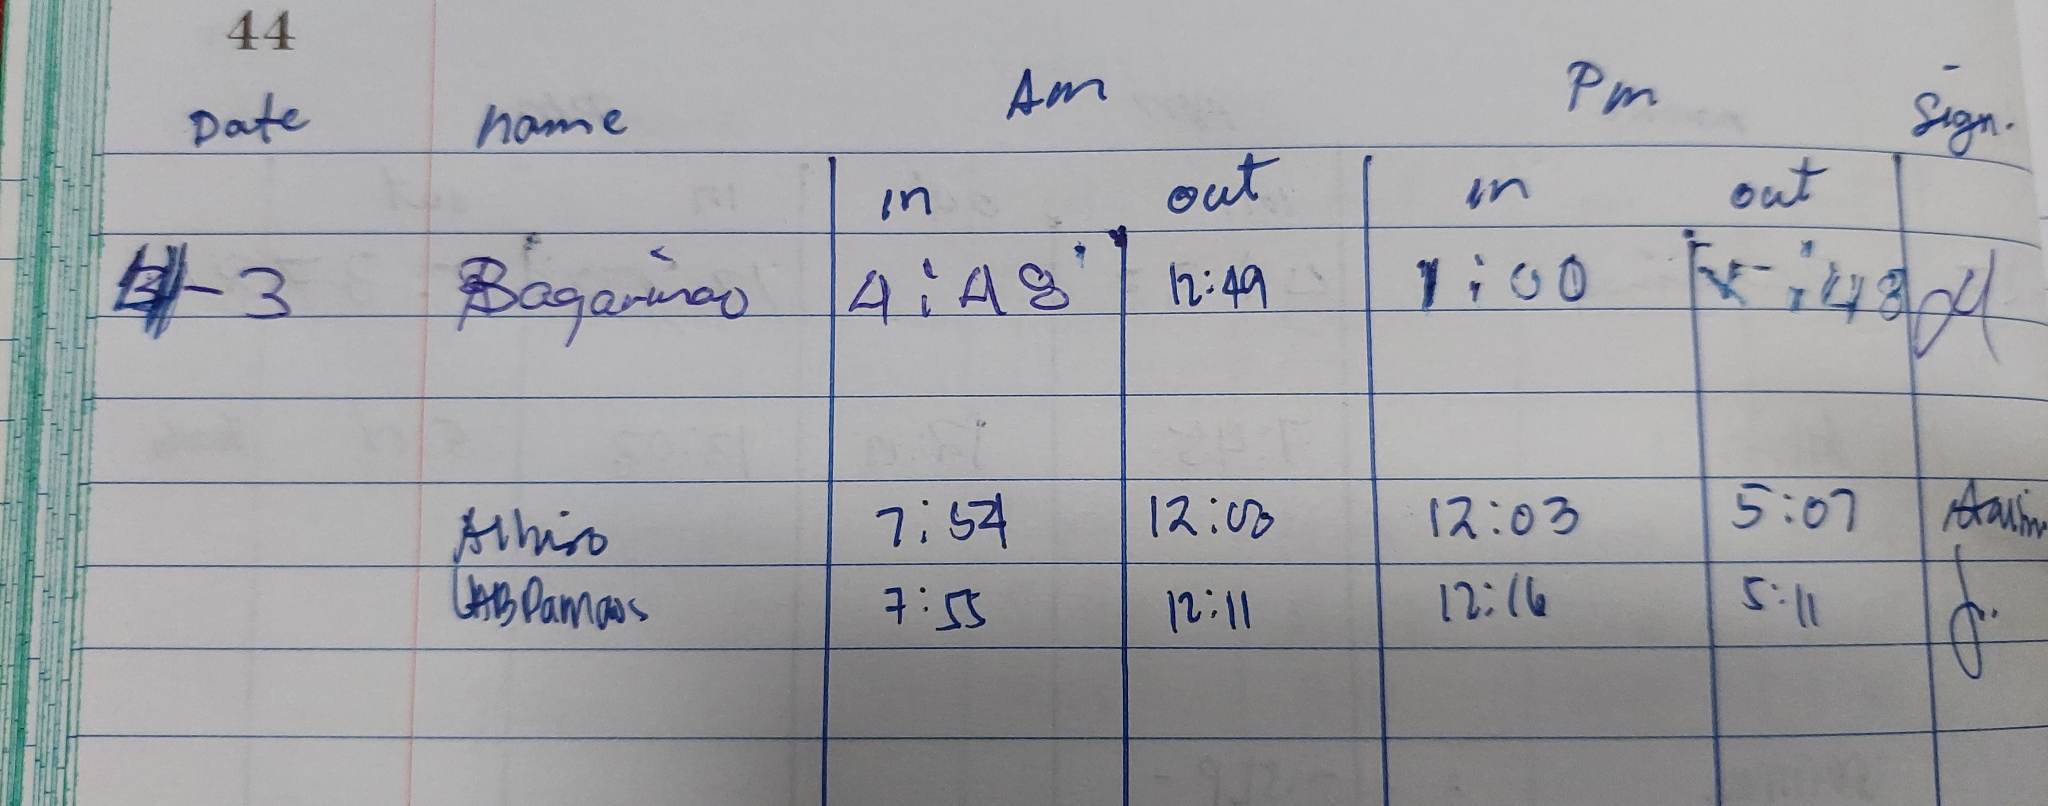 44
Date name Am Pm Sign.
in out in out
4-3 Bagarinao 4:48 12:49 1:00 5:48
Albiso 7:54 12:00 12:03 5:07
7:55 12:11 12:16 5:11